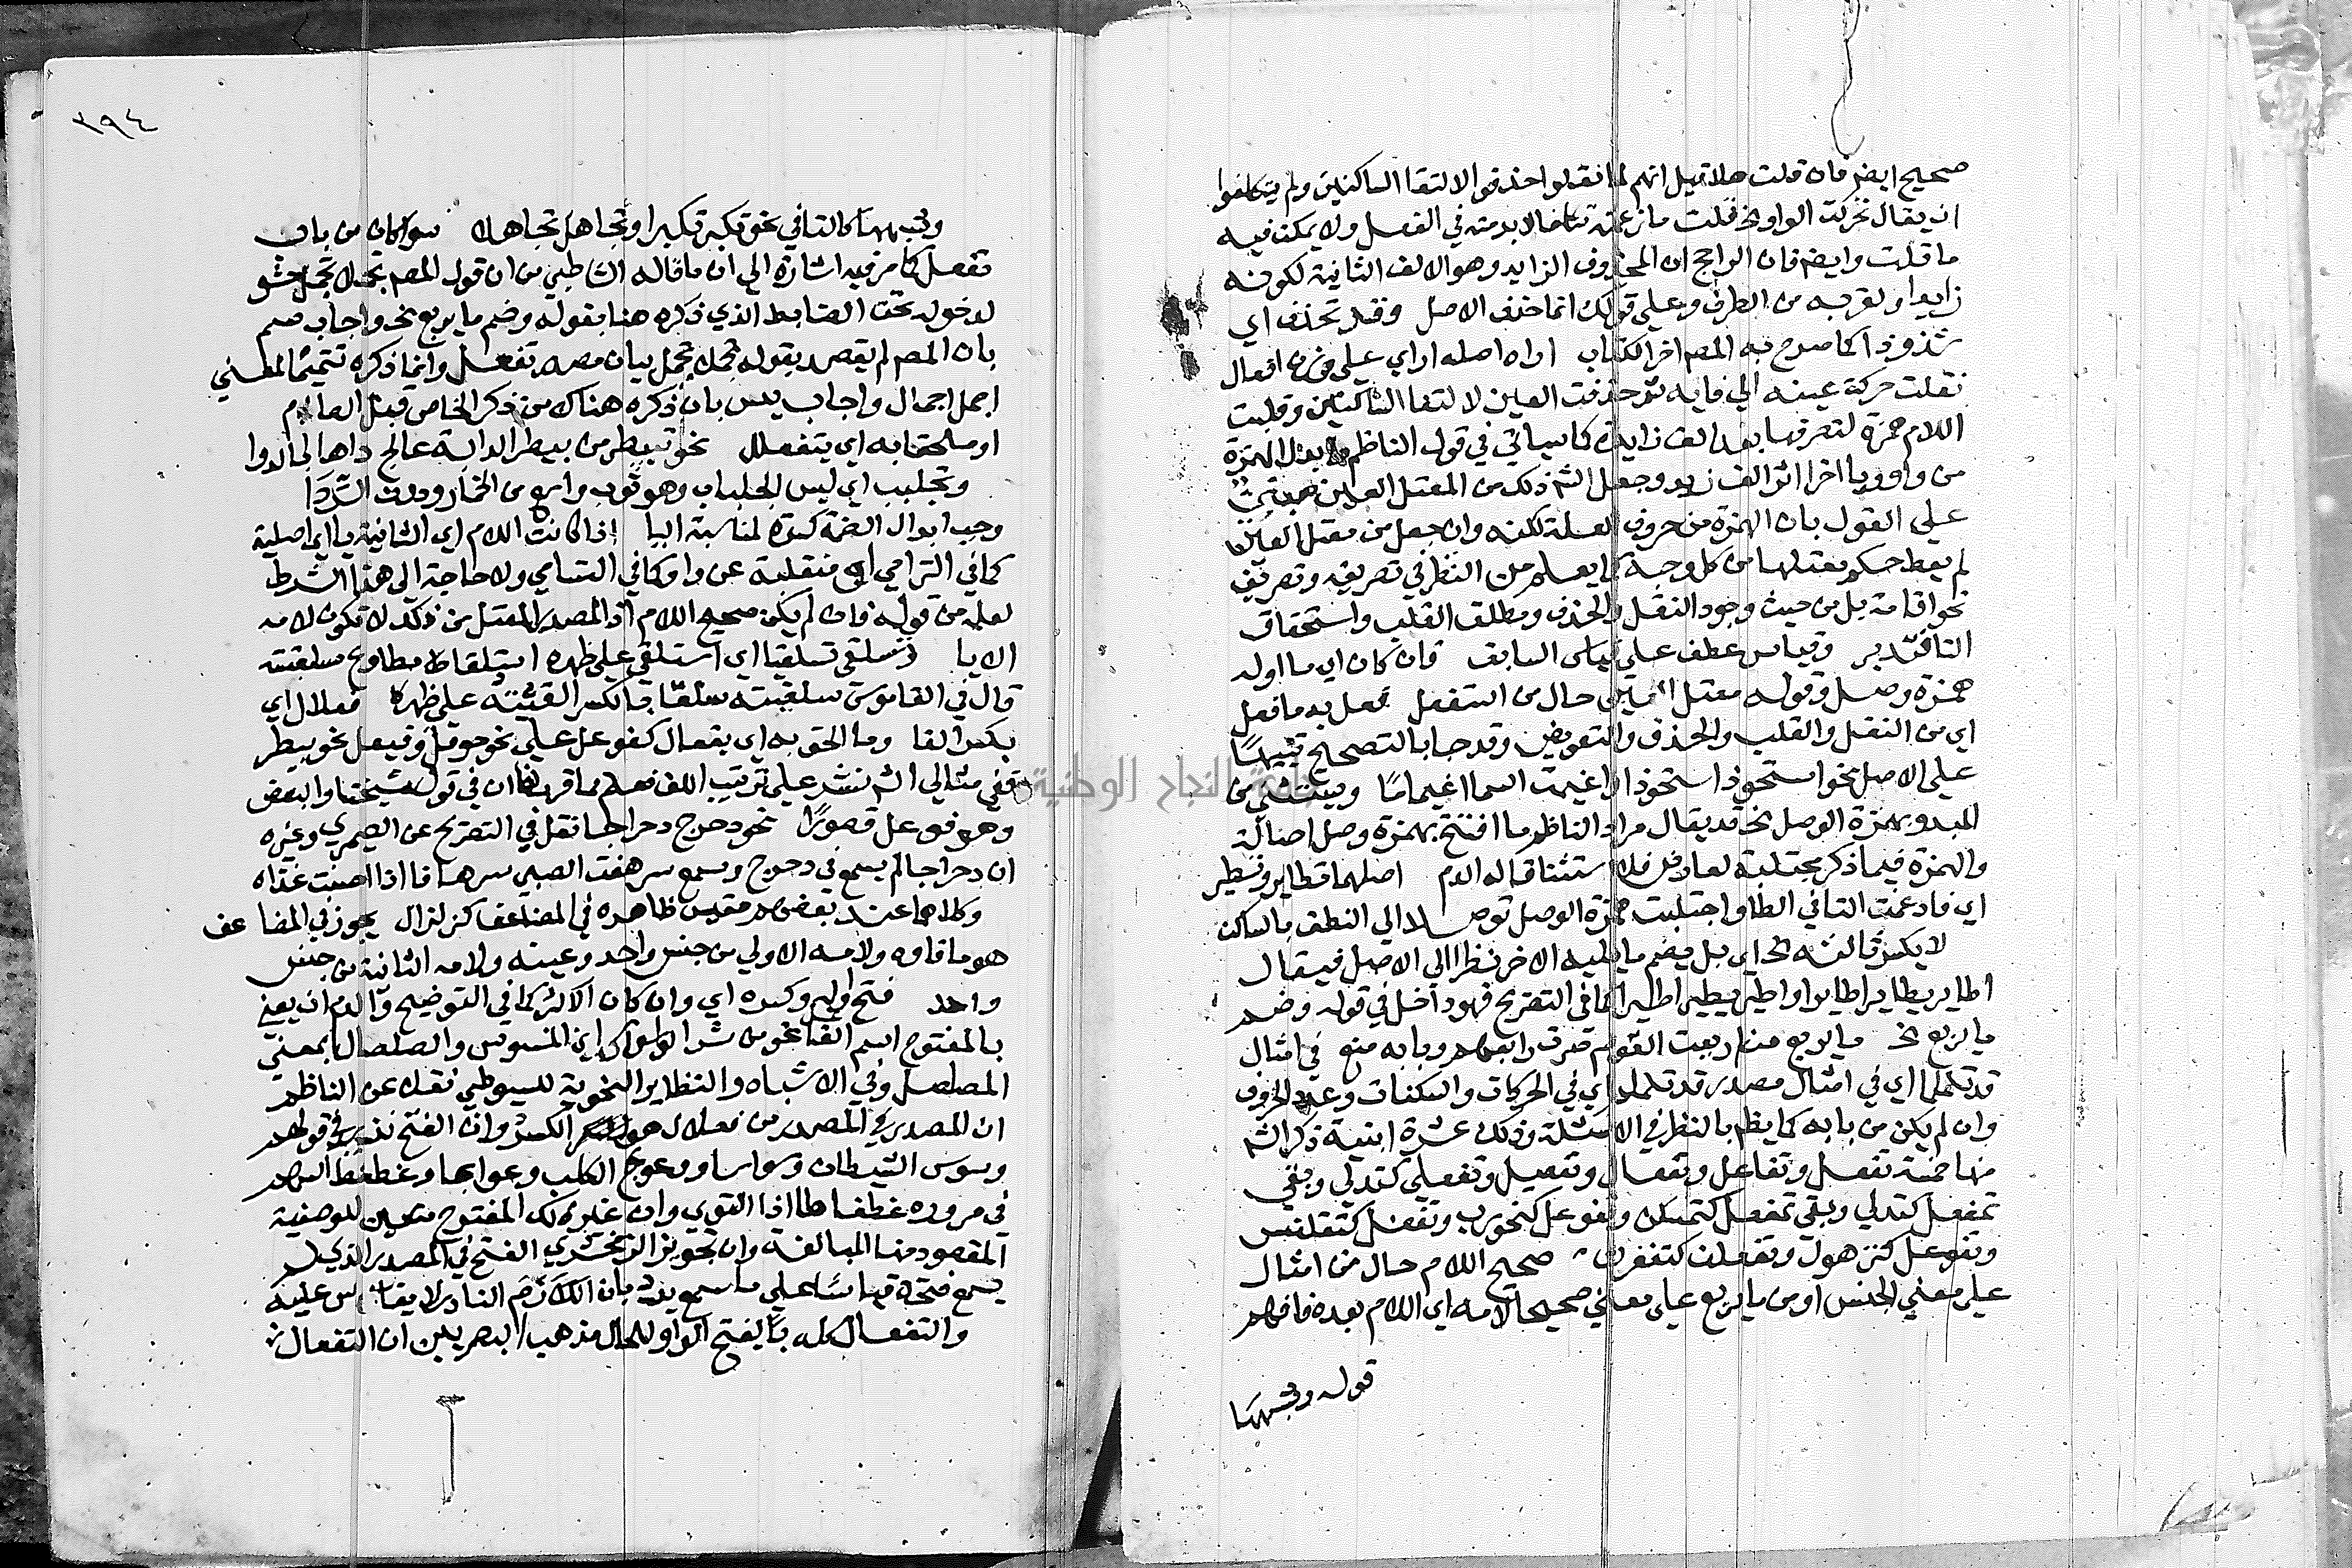 صحيح ايضا فان قلت هلا قيل انهم لما نقلوا حذفوا لالتقا الساكنين ولم يتكلفوا
ان يقال تحركت الواو الخ قلت ما زعمته تكلفا لا بد منه في الفعل ولا يمكن فيه
ما قلت وايضا فان الراجح ان المحذوف الزايد وهو الالف الثانية لكونه
زايدا ولقربه من الطرف وعلى قولك انما حذف الاصل وقد تحذف اي
شذوذا كما صرح به المص اخر الكتاب اراه اصله اراي علي وزن افعال
نقلت حركة عينه الي فايه ثم حذفت العين لالتقا الساكنين وقلبت
اللام همزة لتطرفها بعد الف زايدة كما سياتي في قول الناظم فابدل الهمزة
من واو ويا اخرا اثر الف زيد وجعل الش ذلك من المعتل العين
علي القول بان الهمزة من حروف العلة لكنه وان جعل من معتل العين
لم يعط حكم معتلها من كل وجه كما يعلم من النظر في تصريفه وتصريف
نحو اقامة بل من حيث وجود النقل والحذف ومطلق القلب واستحقاق
التا فتدبر وقياس عطف علي قياس السابق فان كان اي ما اوله
همزة وصل وقوله معتل العين حال من استفعل فعل به ما فعل
اي من النقل والقلب والحذف والتعويض وقد جا بالتصحيح تنبيها
علي الاصل نحو استحوذ استحواذا واغيمت السما اغياما ويستثني من
المبدو بهمزة الوصل الخ قد يقال مراد الناظم ما افتتح بهمزة وصل اصالة
والهمزة فيما ذكر مجتلبة لعارض فلا استثنا قاله الدم اصلهما تطاير وتطير
اي فادغمت التا في الطا واجتلبت همزة الوصل توصلا الي النطق بالساكن
لا يكسر ثالثه الخ اي بل يضم ما يليه الاخر نظرا الي الاصل فيقال
اطاير يطاير اطايرا واطير يطير اطيرا كما في التصريح فهو داخل في قوله وضم
ما يربع الخ ما يربع من اربعت القوم صرت رابعهم وبابه منع في امثال
قد تلملما اي في امثال مصدر قد تلملم اي في الحركات والسكنات وعدد الحروف
وان لم يكن من بابه كما يظهر بالنظر في الامثلة وذلك عشرة ابنية ذكر الش
منها خمسة تفعل وتفاعل وتفعلل وتفيعل وتفعلي كتدلي وبقي
تمفعل كتدلي وبقي تمفعل كتمسكن وتفوعل كتجورب وتفعنل كتقلنس
وتفعول كترهوك وتفعلت كتعفرت صحيح اللام حال من امثال
علي معني الجنس او من ما يربع علي معني صحيحا لامه اي اللام بعده فافهم
قوله وتشبيهها
٣٩٤
وتشبيهها كالتا في نحو تكبر تكبرا وتجاهل تجاهلا سوا كان من باب
تفعل كما مر فيه اشارة الي ان ما قاله الشاطبي من ان قول المص تجملا تجمل حشو
لدخوله تحت الضابط الذي ذكره هنا بقوله وضم ما يربع الخ واجاب سم
بان المص لم يقصد بقوله تجملا تجمل بيان مصدر تفعل وانما ذكره تتميما لمعني
اجمل اجمال واجاب يس بان ذكره هناك من ذكر الخاص قبل العام
او ملحقا به اي يتفعلل نحو تبيطر من بيطر الدابة عالج داها بالدوا
وتجلبب اي لبس الجلباب وهو ثوب واسع من الخمار ودون الردا
وجب ابدال الضمة كسرة لمناسبة اليا اذا كانت اللام اي الثانية يا اي اصلية
كما في الترامي او منقلبة عن واو كما في التسامي ولا حاجة الي هذا الشرط
لعلمه من قوله فان لم يكن صحيح اللام اذ المصدر المعتل من ذلك لا تكون لامه
الا يا وتسلقي تسلقيا اي استلقي علي ظهره استلقا مطاوع سلقيته
قال في القاموس سلقيته سلقا بالكسر القيته علي ظهره فعلال اي
بكسر الفا وما الحق به اي بفعلل كفوعل علي نحو حوقل وفيعل نحو بيطر
ففي مثالي الش نشر علي ترتيب اللف فعلم مما قررناه ان في قول شيخنا والبعض
وهو فوعل قصورا نحو دحرج دحراجا نقل في التصريح عن الصيمري وغيره
ان دحراجا لم يسمع في دحرج وسمع سرهفت الصبي سرهافا اذا احسنت غذاه
وكلاهما عند بعضهم مقيس ظاهره في المضاعف كزلزال يجوز في المضاعف
هو ما فاوه ولامه الاولي من جنس واحد وعينه ولامه الثانية من جنس
واحد فتح اوله وكسره اي وان كان الاكثر كما في التوضيح والدم ان يعني
بالمفتوح اسم الفاعل نحو من شر الوسواس اي الموسوس والصلصال بمعني
المصلصل وفي الاشباه والنظاير النحوية للسيوطي نقلا عن الناظم
ان المصدري المصدر من فعلال هو الكسر وان الفتح نادر في قولهم
وسوس الشيطان وسواسا ووعوع الكلب وعواعا وعظعظ السهم
في مروره عظعاظا اذا التوي وان غير ذلك المفتوح متعين للوصفية
المقصود منها المبالغة وان تجويز الزمخشري الفتح في المصدر الذي لم
يسمع فتحه قياسا علي ما سمع يرد بان اللازم النادر لا يقاس عليه
والتفعال كله بالفتح الواو للحال مذهب البصريين ان التفعال